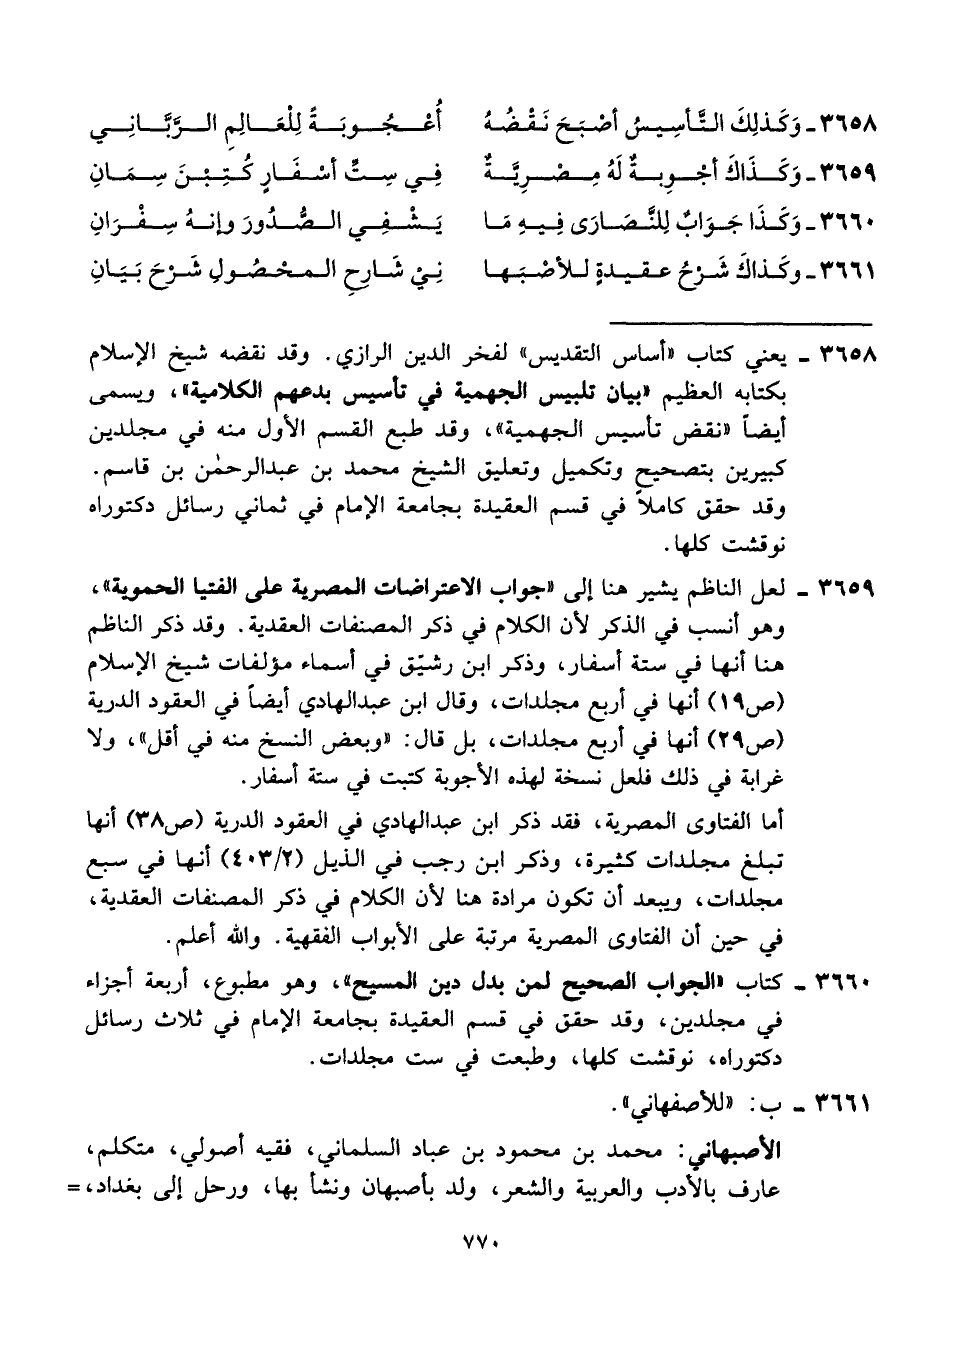 ٣٦٥٨ـ وَكَذلِكَ التَّأسِيسُ أصْبَحَ نَقْضُهُ أُعْجُوبَةً لِلْعَالِمِ الرَّبَّانِي
٣٦٥٩ـ وَكَذَاكَ أجْوِبةٌ لَهُ مِصْرِيَّةٌ فِي سِتِّ أسْفَارٍ كُتِبْنَ سِمَانِ
٣٦٦٠ـ وَكَذَا جَوَابٌ لِلنَّصَارَى فِيهِ مَا يَشْفِي الصُّدُورَ وإنهُ سِفْرَانِ
٣٦٦١ـ وكَذاكَ شَرْحُ عقيدةٍ للأصْبَها نِيْ شَارِحِ المحْصُولِ شَرْحَ بَيَانِ
٣٦٥٨ ـ يعني كتاب «أساس التقديس» لفخر الدين الرازي. وقد نقضه شيخ الإسلام
بكتابه العظيم «بيان تلبيس الجهمية في تأسيس بدعهم الكلامية»، ويسمى
أيضاً «نقض تأسيس الجهمية»، وقد طبع القسم الأول منه في مجلدين
كبيرين بتصحيح وتكميل وتعليق الشيخ محمد بن عبدالرحمٰن بن قاسم.
وقد حقق كاملاً في قسم العقيدة بجامعة الإمام في ثماني رسائل دكتوراه
نوقشت كلها.
٣٦٥٩ ـ لعل الناظم يشير هنا إلى «جواب الاعتراضات المصرية على الفتيا الحموية»،
وهو أنسب في الذكر لأن الكلام في ذكر المصنفات العقدية. وقد ذكر الناظم
هنا أنها في ستة أسفار، وذكر ابن رشيّق في أسماء مؤلفات شيخ الإسلام
(ص١٩) أنها في أربع مجلدات، وقال ابن عبدالهادي أيضاً في العقود الدرية
(ص٢٩) أنها في أربع مجلدات، بل قال: «وبعض النسخ منه في أقل»، ولا
غرابة في ذلك فلعل نسخة لهذه الأجوبة كتبت في ستة أسفار.
أما الفتاوى المصرية، فقد ذكر ابن عبدالهادي في العقود الدرية (ص٣٨) أنها
تبلغ مجلدات كثيرة، وذكر ابن رجب في الذيل (٤٠٣/٢) أنها في سبع
مجلدات، ويبعد أن تكون مرادة هنا لأن الكلام في ذكر المصنفات العقدية،
في حين أن الفتاوى المصرية مرتبة على الأبواب الفقهية. والله أعلم.
٣٦٦٠ ـ كتاب «الجواب الصحيح لمن بدل دين المسيح»، وهو مطبوع، أربعة أجزاء
في مجلدين، وقد حقق في قسم العقيدة بجامعة الإمام في ثلاث رسائل
دكتوراه، نوقشت كلها، وطبعت في ست مجلدات.
٣٦٦١ ـ ب: «للأصفهاني».
الأصبهاني: محمد بن محمود بن عباد السلماني، فقيه أصولي، متكلم،
عارف بالأدب والعربية والشعر، ولد بأصبهان ونشأ بها، ورحل إلى بغداد، =
٧٧٠